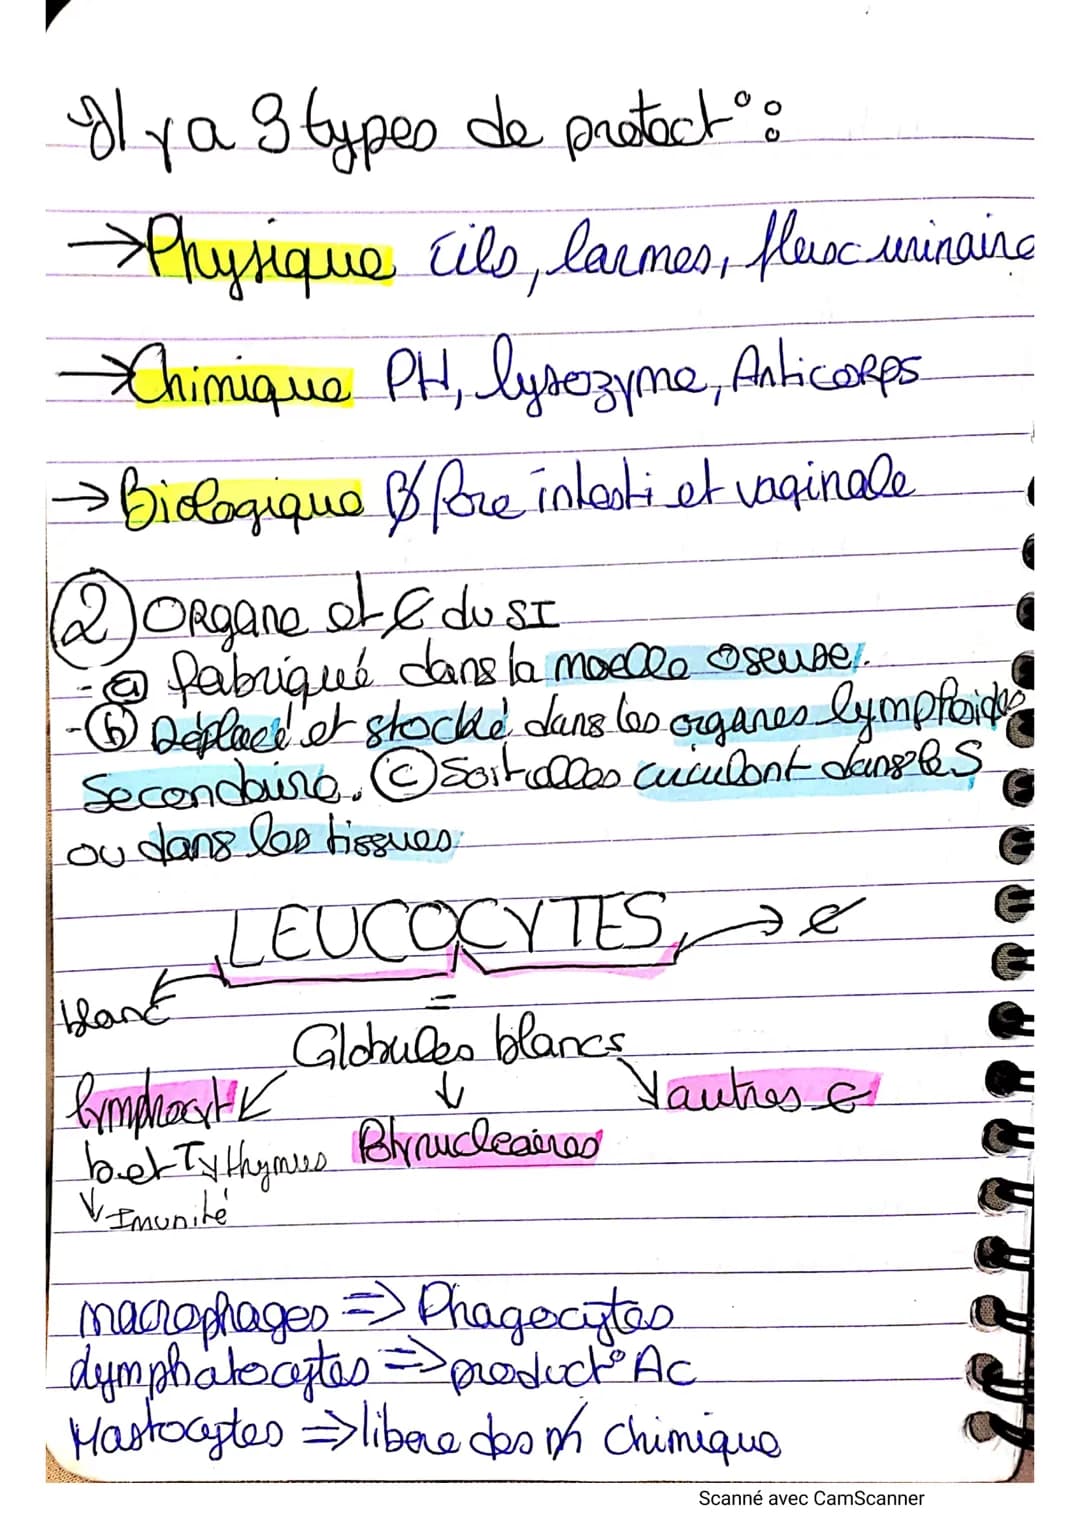 Il y a 3 types de protect° :
→ Physique cils, larmes, flux urinaire
→ Chimique PH, lysozyme, Anticorps
→ Biologique flore intesti et vaginale
② Organe et C du SI
- ⓐ fabriqué dans la moelle oseuse.
- ⓑ Déplacé et stocké dans les organes lymphoides
Secondaire. ⓒ Soit elles circulent dans le S
ou dans les tissues
LEUCOCYTES →
blanc =
Globules blancs
lymphocyt autres C
b et T, thymus Polynucleaires
↓ Imunité
macrophages => Phagocytes
lymphatocytes => product° Ac
Mastocytes => libere des chimique
Scanné avec CamScanner